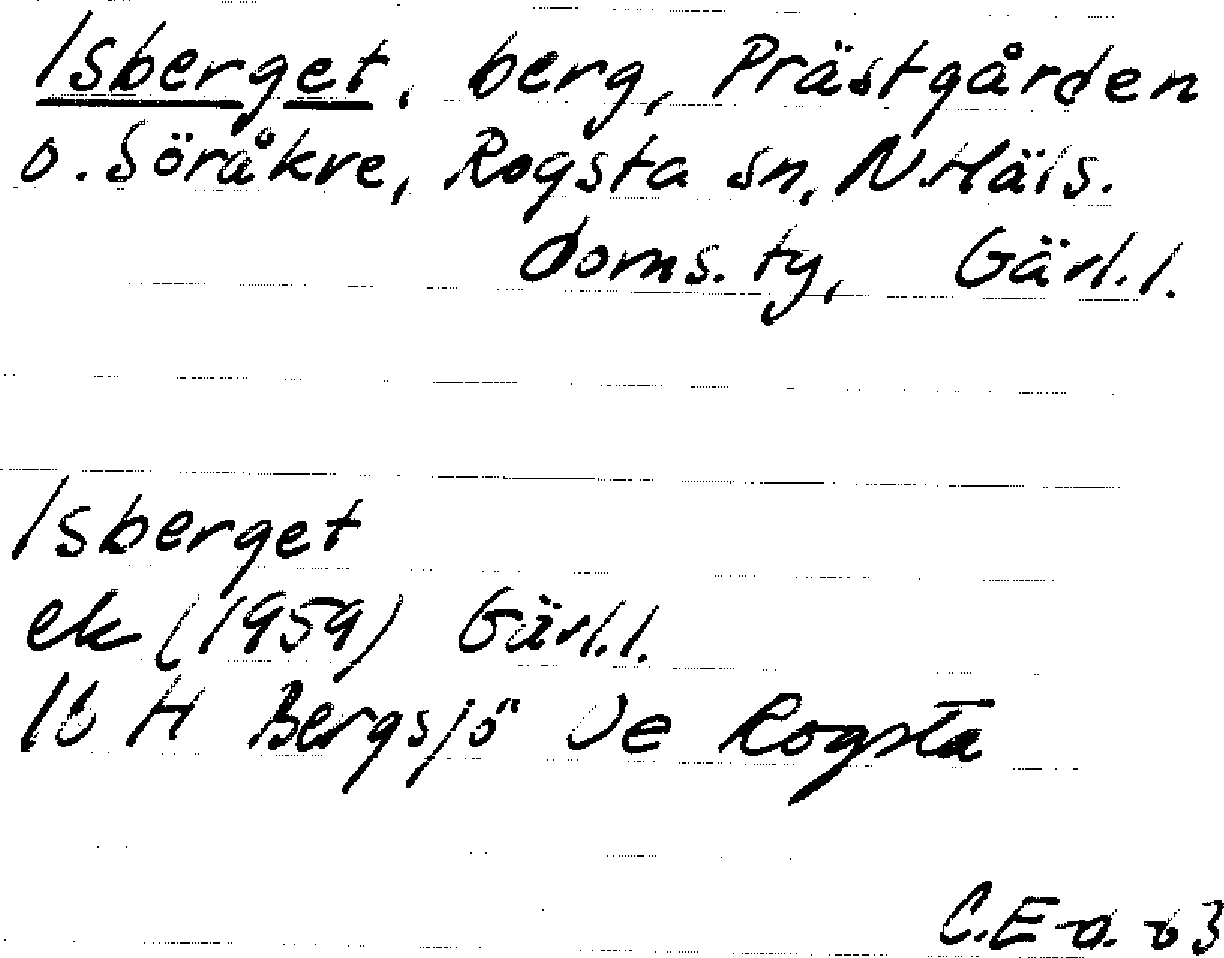 Isberget, berg, Prästgården
o. Söråkre, Rogsta sn, N.Häls.
doms. ty, Gävl.l.
Isberget
ek (1959) Gävl.l.
16 H Bergsjö Ve Rogsta
C.E-d. 63